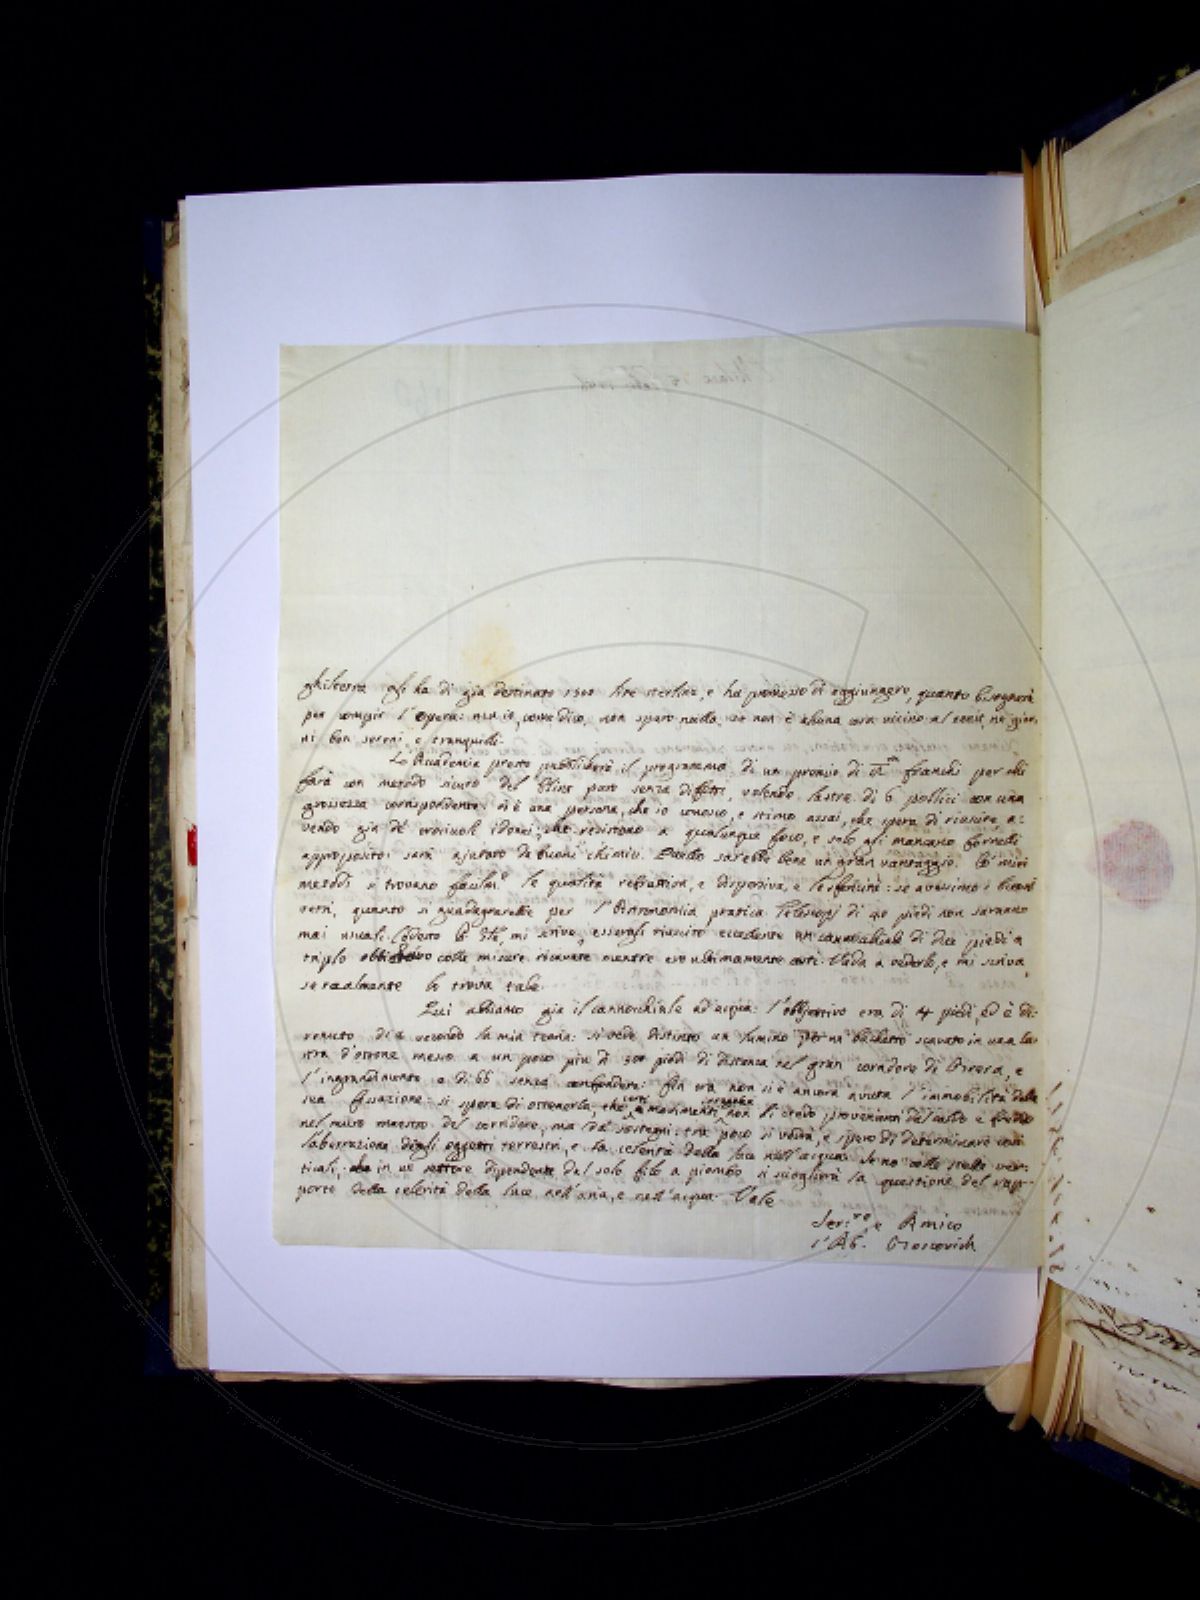 ghilterra gli ha di già destinato 1500 lire sterline, e ha promesso di aggiungere, quanto bisognerà
per compir l'opera: ma io, come dico, non spero nulla, se non è alcuna cosa vicino al zenit, ne' gior-
ni ben sereni, e tranquilli.
L'Accademia presto pubblicherà il programma di un premio di franchi per chi
farà con metodo sicuro del Flint puro senza difetti, volendo lastre di 6 pollici con una
grossezza corrispondente: vi è una persona, che io conosco, e stimo assai, che spera di riuscire, a-
vendo già de' crociuoli idonei, che resistono a qualunque foco, e solo gli mancano fornelli
approposito: sarà ajutato da buoni chimici. Questo sarebbe un gran vantaggio. Co' miei
metodi si trovano facilm.e le qualità refrattiva, e dispersiva, e le sfericità: se avessimo i buoni
vetri, quanto si guadagnarebbe per l'Astronomia pratica. Telescopj di 40 piedi non saranno
mai usuali. Codesto mi scrive, essergli riuscito eccedente un cannocchiale di dieci piedi a
triplo obbiettivo colle misure ricavate mentre ero ultimamente costì. Vada a vederlo, e mi scriva,
se realmente lo trova tale.
Qui abbiamo già il cannocchiale ad acqua: l'obbjettivo era di 4 piedi, ed è di-
venuto di secondo la mia teoria: si vede distinto un lumino per un buchetto scavato in una la-
stra d'ottone messo a un poco più di 300 piedi di distanza nel gran corridore di Brera, e
l'ingrandimento è di 66 senza confondere: fin ora non si è ancora avuta l'immobilità della
sua fissazione: si spera di ottenerla, che certi movimenti non li credo provenienti dal caldo e freddo
nel muro maestro del corridore, ma da' sostegni: tra poco si vedrà, e spero di determinare così
l'aberrazione degli oggetti terrestri, e la celerità della luce nell'acqua. Se no colle stelle ver-
ticali, in un settore dipendente dal solo filo a piombo si scioglierà la questione del rap-
porto della celerità della luce nell'aria, e nell'acqua. Vale
Ser.re e Amico
l'Ab. Boscovich